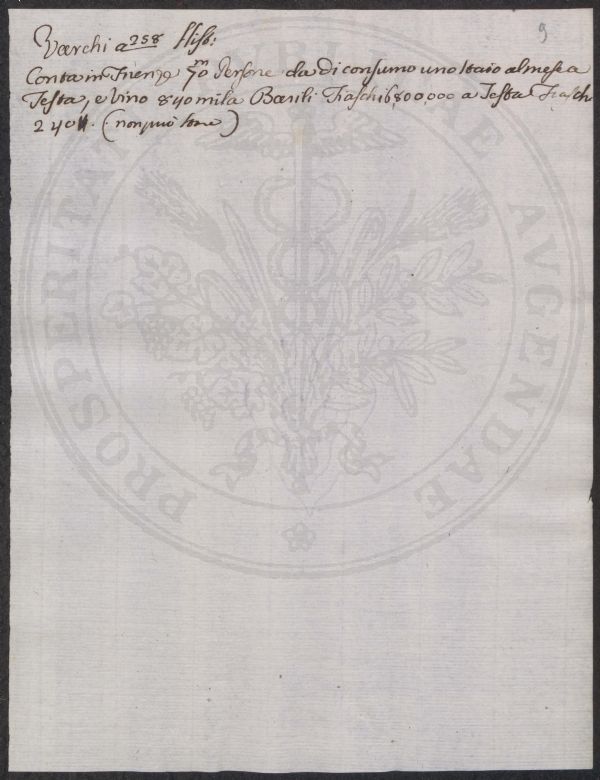 9
Varchi a 258 Hist:
Conta in Firenze 70m Persone da di consumo uno staio al mese a
Testa, e Vino 840 mila Barili Fiaschi 6,800,000 a Testa Fiaschi
240. (non può stare)
PROSPERITATI PUBLICAE AVGENDAE